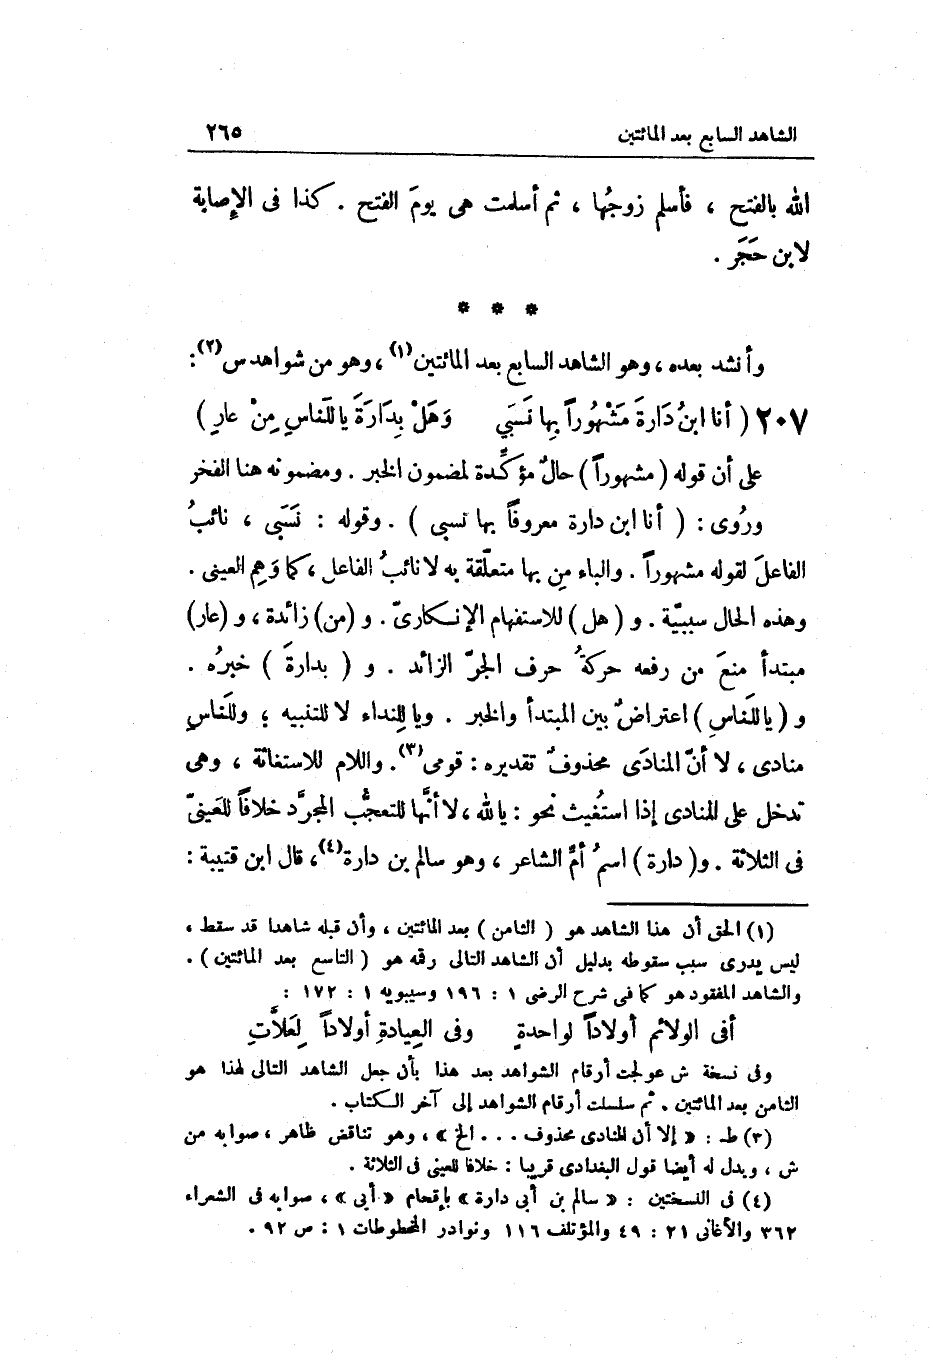 الشاهد السابع بعد المائتين ٢٦٥
الله بالفتح ، فأسلم زوجُها ، ثم أسلمت هى يومَ الفتح . كذا فى الإصابة
لابن حَجَر .
* * *
وأنشد بعده ، وهو الشاهد السابع بعد المائتين(١) ، وهو من شواهد س(٢) :
٢٠٧ ( أنا ابنُ دَارةَ مَشْهُوراً بِها نَسَبَي وَهَلْ بِدَارَةَ ياللَنَّاسِ مِنْ عارِ )
على أن قوله ( مشهوراً ) حالٌ مؤكِّدة لمضمون الخبر . ومضمونه هنا الفخر
ورُوى : ( أنا ابن دارة معروفاً بها نسبى ) . وقوله : نَسَبَى ، نائبُ
الفاعلَ لقوله مشهوراً . والباء مِن بها متعلّقة به لا نائبُ الفاعل ، كما وَهِم العينى .
وهذه الحال سببيّة . و ( هل ) للاستفهام الإنكارىّ . و (من) زائدة ، و (عار)
مبتدأ منعَ من رفعه حركةُ حرف الجرّ الزائد . و ( بدارةَ ) خبرُه .
و ( ياللَنَّاسِ ) اعتراضٌ بين المبتدأ والخبر . ويا للِنداء لا للتنبيه ؛ وللَنَّاسِ
منادى ، لا أنّ المنادَى محذوفٌ تقديره : قومى(٣). واللام للاستغاثة ، وهى
تدخل على المنادى إذا استُغيث نحو : يالله ، لا أنَّها للتعجُّب المجرَّد خلافاً للعَينىّ
فى الثلاثة . و( دارة ) اسمُ أمِّ الشاعر ، وهو سالم بن دارة(٤)، قال ابن قتيبة :
(١) الحق أن هذا الشاهد هو ( الثامن ) بعد المائتين ، وأن قبله شاهدا قد سقط ،
ليس يدرى سبب سقوطه بدليل أن الشاهد التالى رقمه هو ( التاسع بعد المائتين ) .
والشاهد المفقود هو كما فى شرح الرضى ١ : ١٩٦ وسيبويه ١ : ١٧٢ :
أفى الولائم أولاداً لواحدةٍ وفى العِيادةِ أولاداً لِعَلاَّتِ
وفى نسخة ش عولجت أرقام الشواهد بعد هذا بأن جعل الشاهد التالى لهذا هو
الثامن بعد المائتين . ثم سلسلت أرقام الشواهد إلى آخر الكتاب .
(٣) ط : « إلا أن المنادى محذوف . . . الخ » ، وهو تناقض ظاهر ، صوابه من
ش ، ويدل له أيضا قول البغدادى قريبا : خلافا للعينى فى الثلاثة .
(٤) فى النسختين : « سالم بن أبى دارة » بإقحام « أبى » ، صوابه فى الشعراء
٣٦٢ والأغانى ٢١ : ٤٩ والمؤتلف ١١٦ ونوادر المخطوطات ١ : ص ٩٢ .